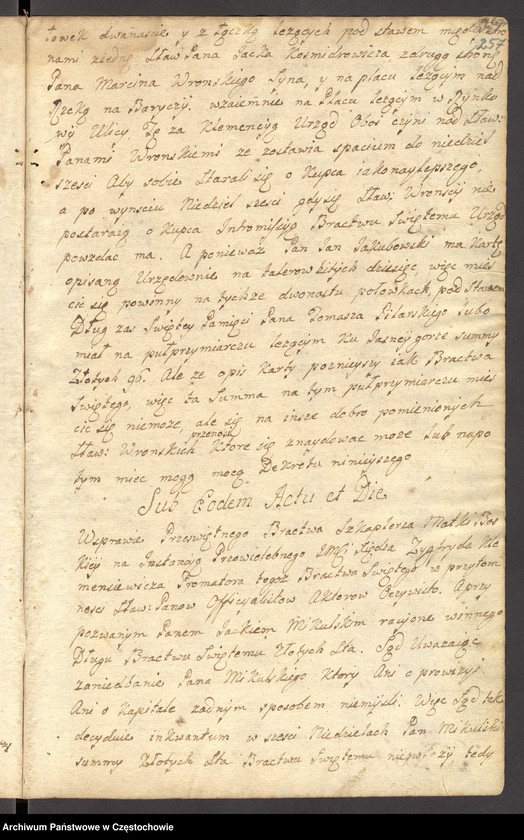 257
łowek dwanascie y z łączką lezących pod stawem między stro
nami z iedney Sław Pana Jacka Kosmidrowicza z drugą stroną
Pana Marcina Wronskiego Syna, y na placu lezącym nad
Rzeką na Baryczy. wzaiemnie na Placu lezącym w Rynko
wy Ulicy Tę za Klemencyą Urząd Oboi czyni nad Sław:
Panami Wronskiemi ze zostawia spacium do niedziel
szesci Aby sobie Starali się o Kupca iako naylepszego,
a po wynściu Niedziel szesci gdy się Sław: Wronscy nie
postaraią o Kupca Intromissyą Bractwu Swiętemu Urząd
powzdac ma. A ponieważ Pan Jan Jakubowski ma Kartę
opisaną Urzędownie na talerow bitych dziesięc, więc mies
cic się powinny na tychze dwonastu połowkach, pod Stawem
Dług zas Swiętey Pamięci Pana Tomasza Pilarskiego lubo
miał na pułprzymiarczu lezącym Ku Jasney gorze summy
Złotych 96. Ale ze opis Karty poznieyszy iak Bractwa
Swiętego, więc ta Summa na tym pułprzymiarczu mies
cic się niemoze, ale się na insze dobro pomienionych
przenosi
Sław: Wronskich Ktore się znaydowac moze lub napo
tym miec mogą mocą Dekretu ninieyszego
Sub Eodem Actu et Die
Wsprawie Przeswiętnego Bractwa Szkaplerza Matki Bos
Kiey na Instancyą Przewielebnego JMCi Xiędza Zygfryda Kle
mensiewicza Promatora tegoz Bractwa Swiętego w przytom
nosci Sław: Panow Officyalistow Aktorow Oczywisto. A przy
pozwanym Panem Jackiem Mikulskim racyone winnego
Długu Bractwu Swiętemu Złotych Sta. Sąd Uwazaiąc
zaniedbanie Pana Mikulskiego Ktory Ani o prowizyi
Ani o Kapitale zadnym sposobem niemysli. Więc Sąd tak
decyduie inkwantum w szesci Niedzielach Pan Mikulski
summy Złotych Sta Bractwu Swiętemu niepołozy, tedy
Archiwum Państwowe w Częstochowie